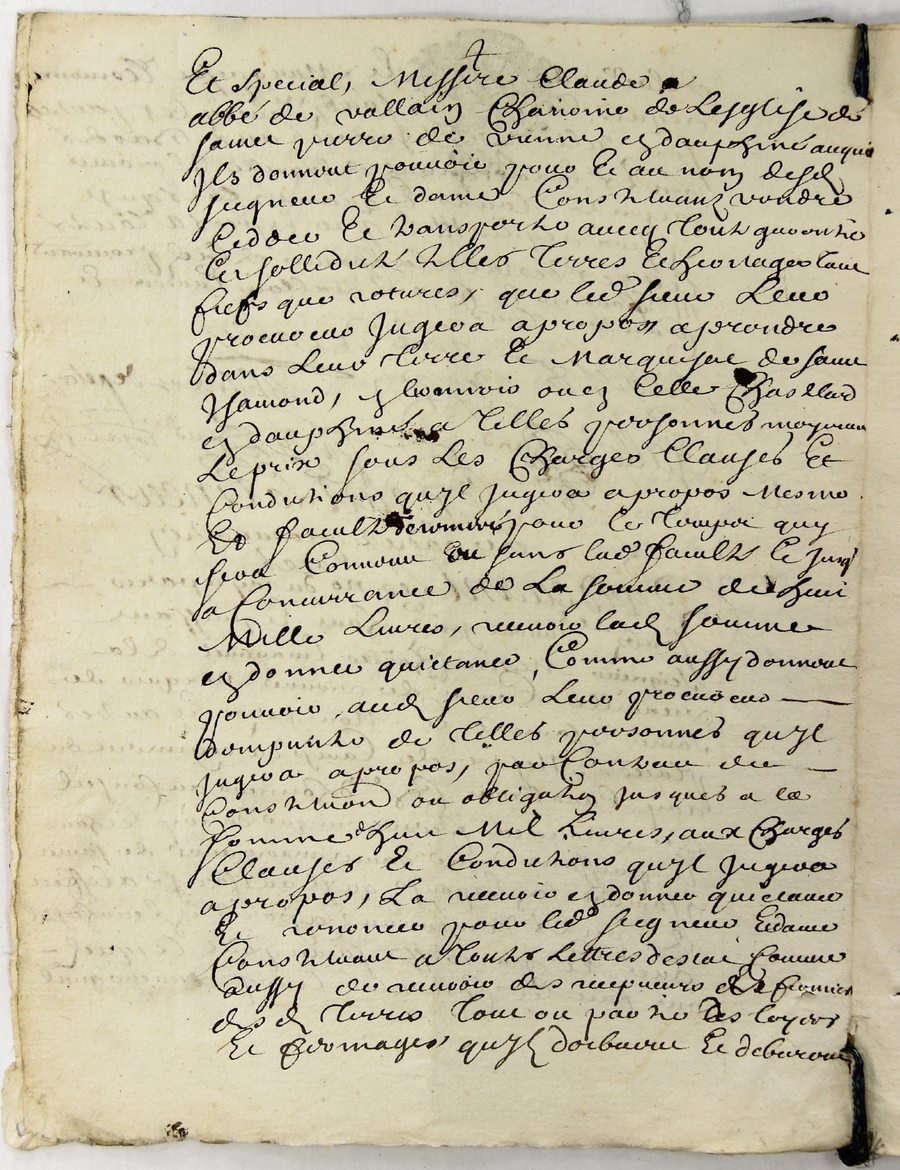 Et special, Messire Claude
abbé de vallain Chanoine de Lesglise de
saint pierre de vienne en dauphiné auquel
Ils donnent pouvoir pour Et au nom desd
seigneur Et dame Constituans vendre
Cedder Et transporter avecq Toute guarentie
Et sollidité telles Terres Et heritages tant
fiefs que rotures, que led sieur Leur
procureur Jugera apropos aprendre
dans Leur Terre Et Marquisat de saint
Chamond, en lionnois ou en Celle Chastelard
en dauphiné a Telles personnes moyennant
Leprix sous Les Charges Clauses Et
Conditions quyl jugera apropos Mesme
Et faculté de remeré pour le temps quy
sera Convenu ou sans lad faculté Et jusq
a Concurrance de La somme de huit
Mille Livres, recevoir lad somme
en donner quictance, Comme aussy donnent
pouvoir aud sieur Leur procureur
dempunter de Telles personnes quyl
jugera apropos, par Contract de
Constitution ou obligation jusques a la
somme dhuit Mil Livres, aux Charges
Clauses Et Conditions quyl jugera
apropos, La recevoir en donner quictance
Et renoncer pour led seigneur Et dame
Constituant a Toutes Lettres destat, Comme
aussy de recevoir des recepveurs Et fermiers
desd Terres Tout ou partie des loyers
Et fermages quyls doibvent Et debvront